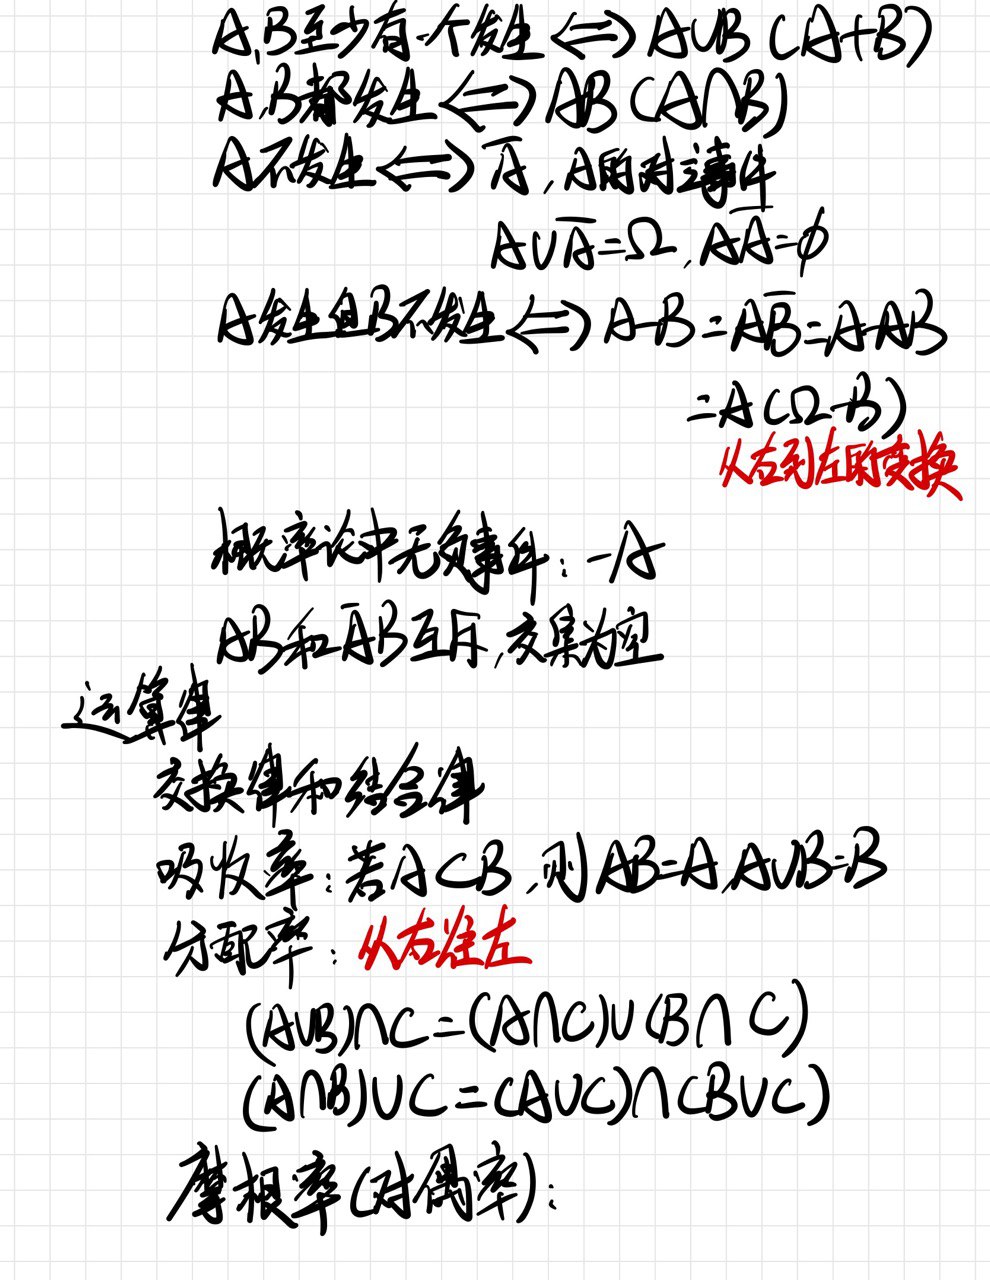 A,B至少有一个发生⟺A∪B(A+B)
A,B都发生⟺AB(A∩B)
A不发生⟺A̅,A的对立事件
A∪A̅=Ω,AA̅=ϕ
A发生且B不发生⟺A-B=AB̅=A-AB
=A(Ω-B)
从右到左的变换
概率论中无负事件:-A
AB和A̅B互斥,交集为空
运算律
交换律和结合律
吸收率:若A⊂B,则AB=A,A∪B=B
分配率:从右往左
(A∪B)∩C=(A∩C)∪(B∩C)
(A∩B)∪C=(A∪C)∩(B∪C)
摩根率(对偶率):